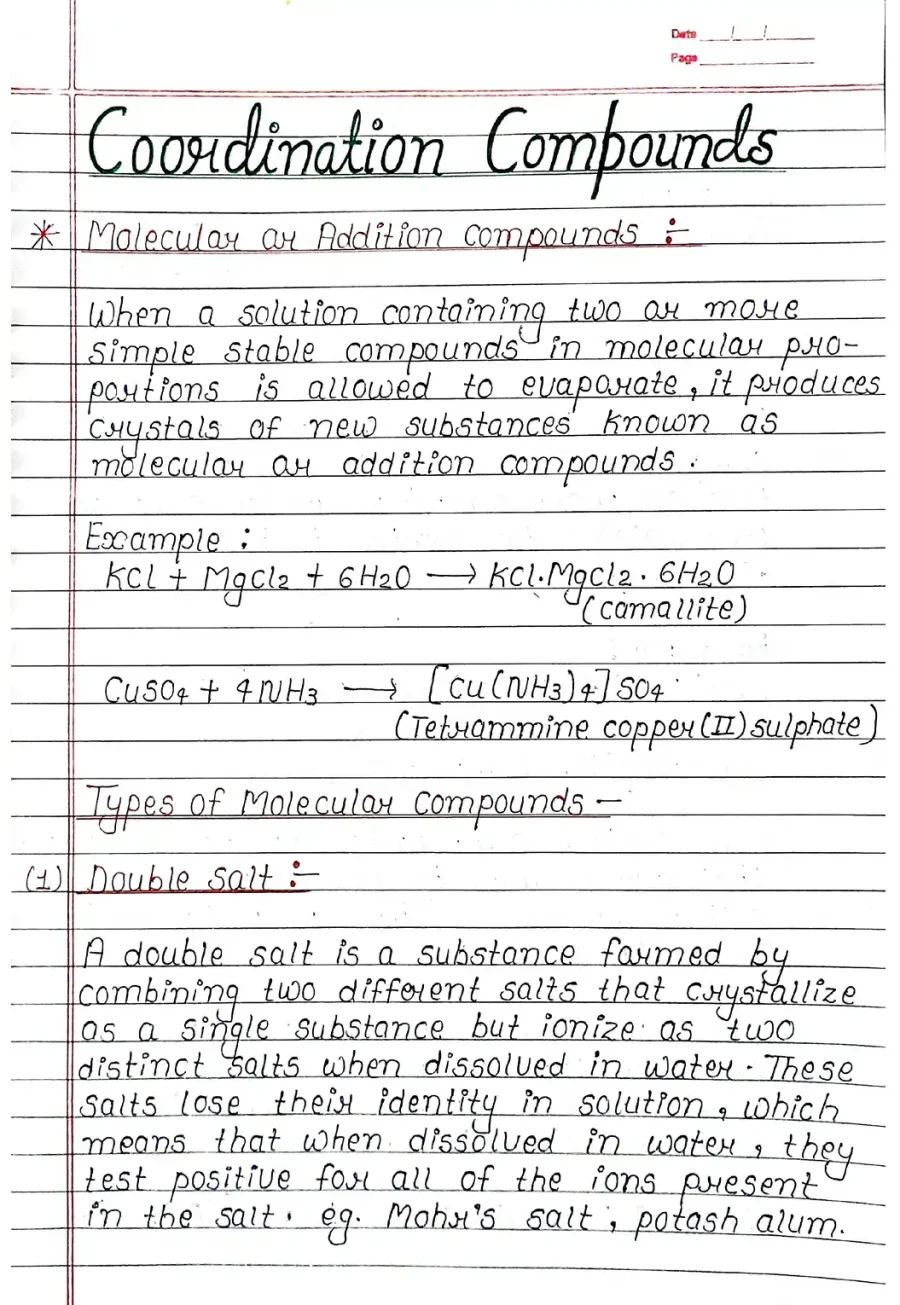 Date / /
Page
Coordination Compounds
* Molecular or Addition compounds :-
When a solution containing two or more
simple stable compounds in molecular pro-
portions is allowed to evaporate, it produces
crystals of new substances known as
molecular or addition compounds.
Example :
KCl + MgCl2 + 6H2O → KCl·MgCl2·6H2O
(carnallite)
CuSO4 + 4NH3 → [Cu(NH3)4]SO4
(Tetrammine copper(II) sulphate)
Types of Molecular Compounds —
(1) Double Salt :-
A double salt is a substance formed by
combining two different salts that crystallize
as a single substance but ionize as two
distinct salts when dissolved in water. These
salts lose their identity in solution, which
means that when dissolved in water, they
test positive for all of the ions present
in the salt. eg. Mohr's salt, potash alum.